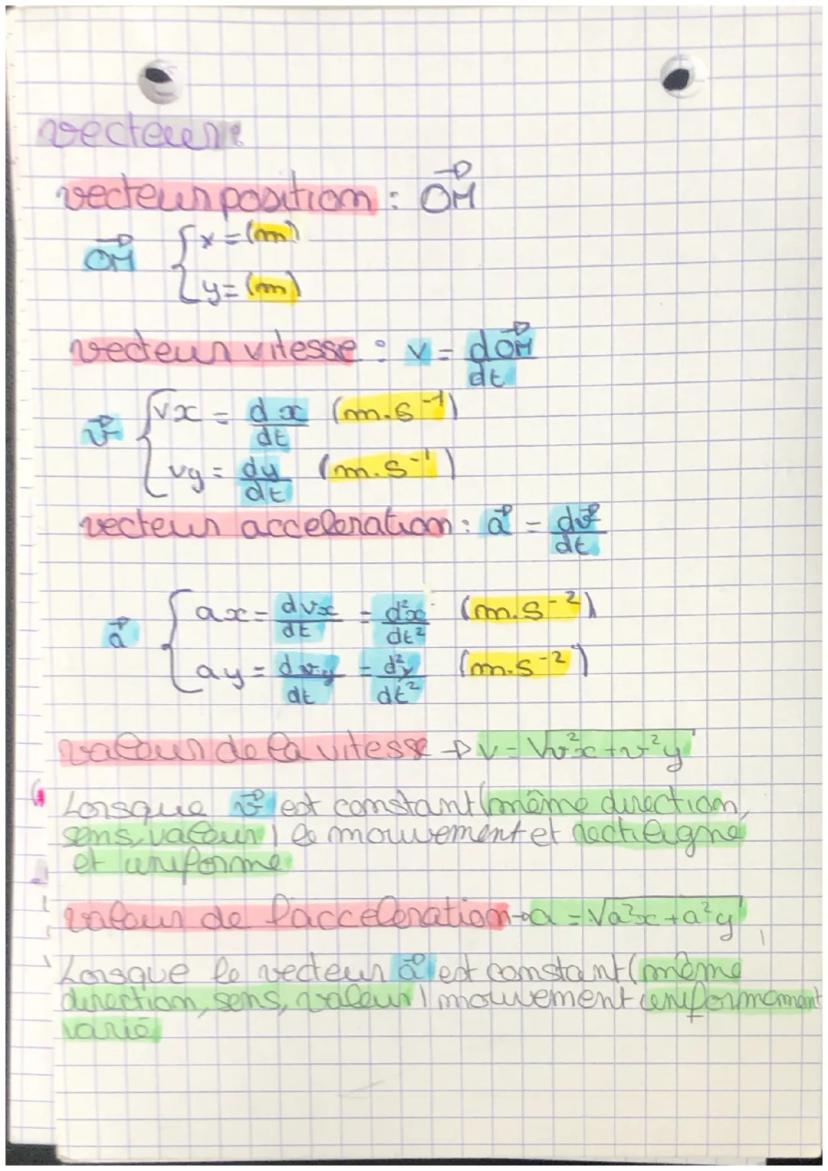 vecteur :
vecteur position : OM→
OM→ { x = (m)
y = (m)
vecteur vitesse : v = dOM→/dt
v→ { vx = dx/dt (m.s⁻¹)
vy = dy/dt (m.s⁻¹)
vecteur acceleration : a→ = dv→/dt
a→ { ax = dvx/dt = d²x/dt² (m.s⁻²)
ay = dvy/dt = d²y/dt² (m.s⁻²)
valeur de la vitesse → v = √v²x + v²y
Lorsque v→ est constant (même direction,
sens, valeur) le mouvement et rectiligne
et uniforme
valeur de l'acceleration → a = √a²x + a²y
Lorsque le vecteur a→ est constant (même
direction, sens, valeur) mouvement uniformemant
varié